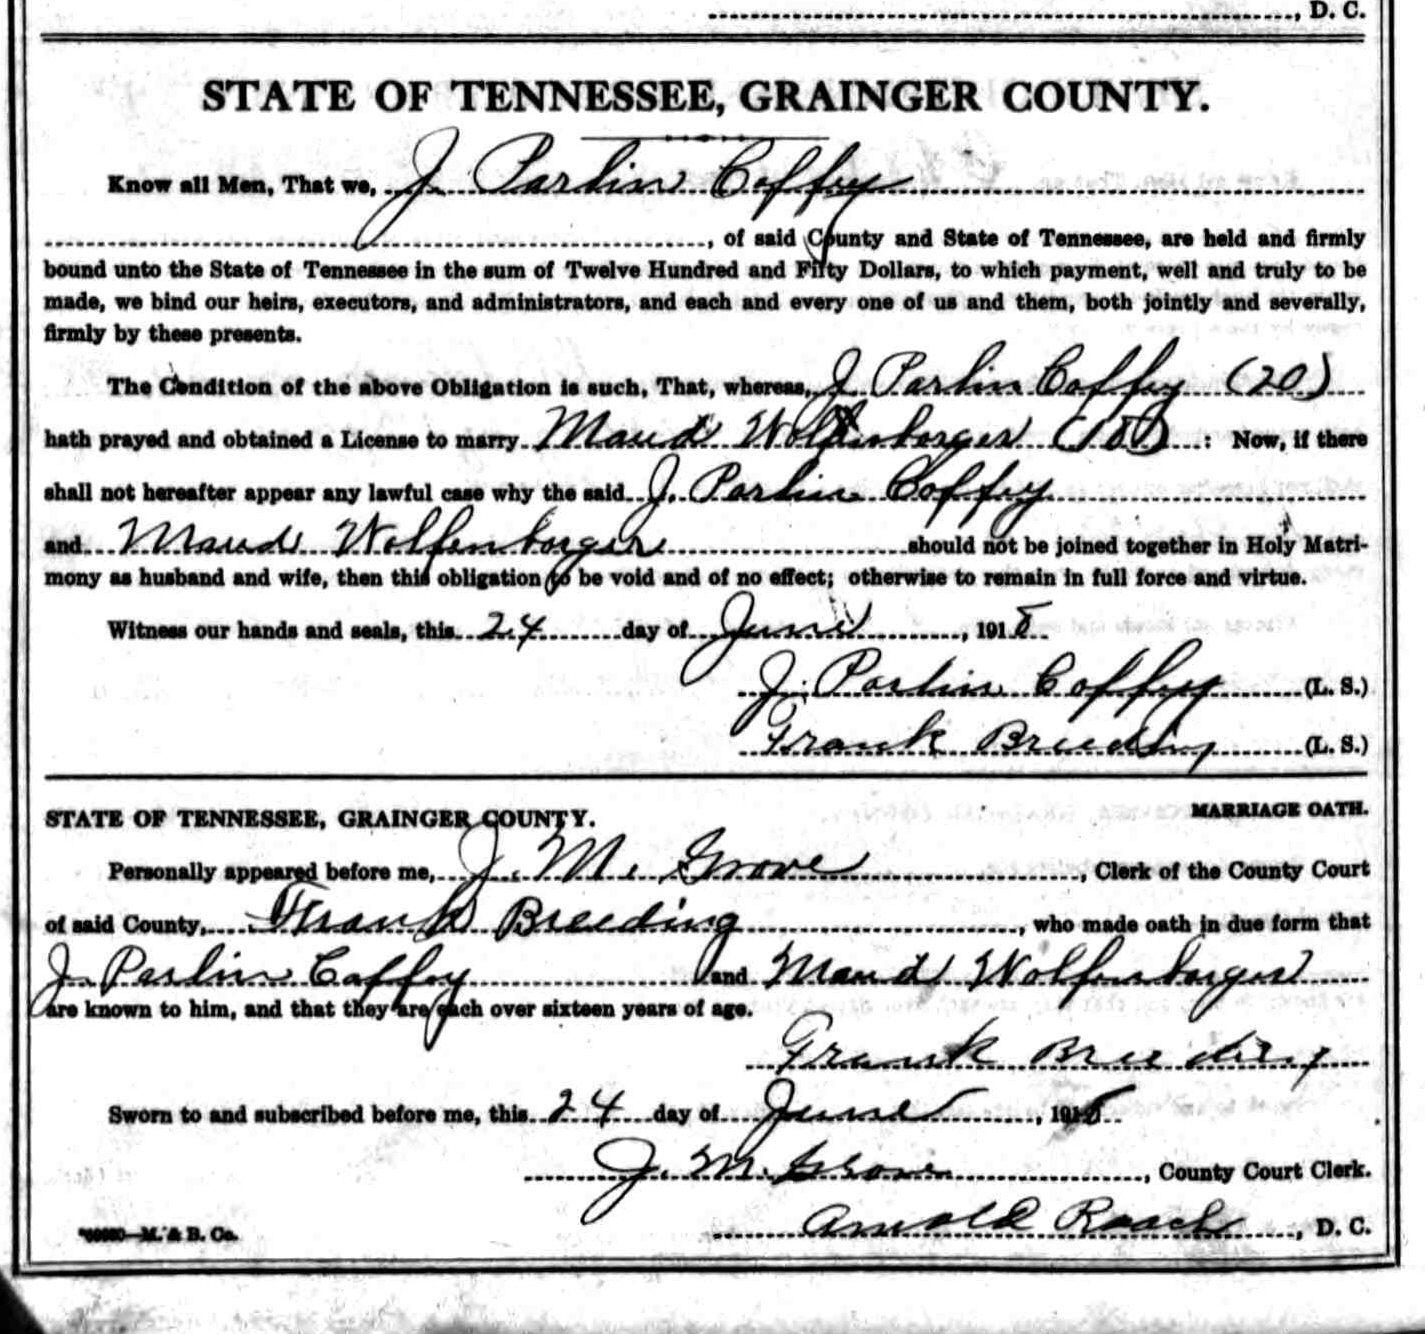 , D. C.
STATE OF TENNESSEE, GRAINGER COUNTY.
Know all Men, That we, J. Parlin Coffey
, of said County and State of Tennessee, are held and firmly
bound unto the State of Tennessee in the sum of Twelve Hundred and Fifty Dollars, to which payment, well and truly to be
made, we bind our heirs, executors, and administrators, and each and every one of us and them, both jointly and severally,
firmly by these presents.
The Condition of the above Obligation is such, That, whereas, J. Parlin Coffey (20)
hath prayed and obtained a License to marry Maud Wolfenbarger : Now, if there
shall not hereafter appear any lawful case why the said J. Parlin Coffey
and Maud Wolfenbarger should not be joined together in Holy Matri-
mony as husband and wife, then this obligation to be void and of no effect; otherwise to remain in full force and virtue.
Witness our hands and seals, this 24 day of June, 191
J. Parlin Coffey (L. S.)
Frank Breeding (L. S.)
STATE OF TENNESSEE, GRAINGER COUNTY. MARRIAGE OATH.
Personally appeared before me, J. M. Grove, Clerk of the County Court
of said County, Frank Breeding, who made oath in due form that
J. Parlin Coffey and Maud Wolfenbarger
are known to him, and that they are each over sixteen years of age.
Frank Breeding
Sworn to and subscribed before me, this 24 day of June, 191
J. M. Grove, County Court Clerk.
M. & B. Co. Arnold Roach, D. C.